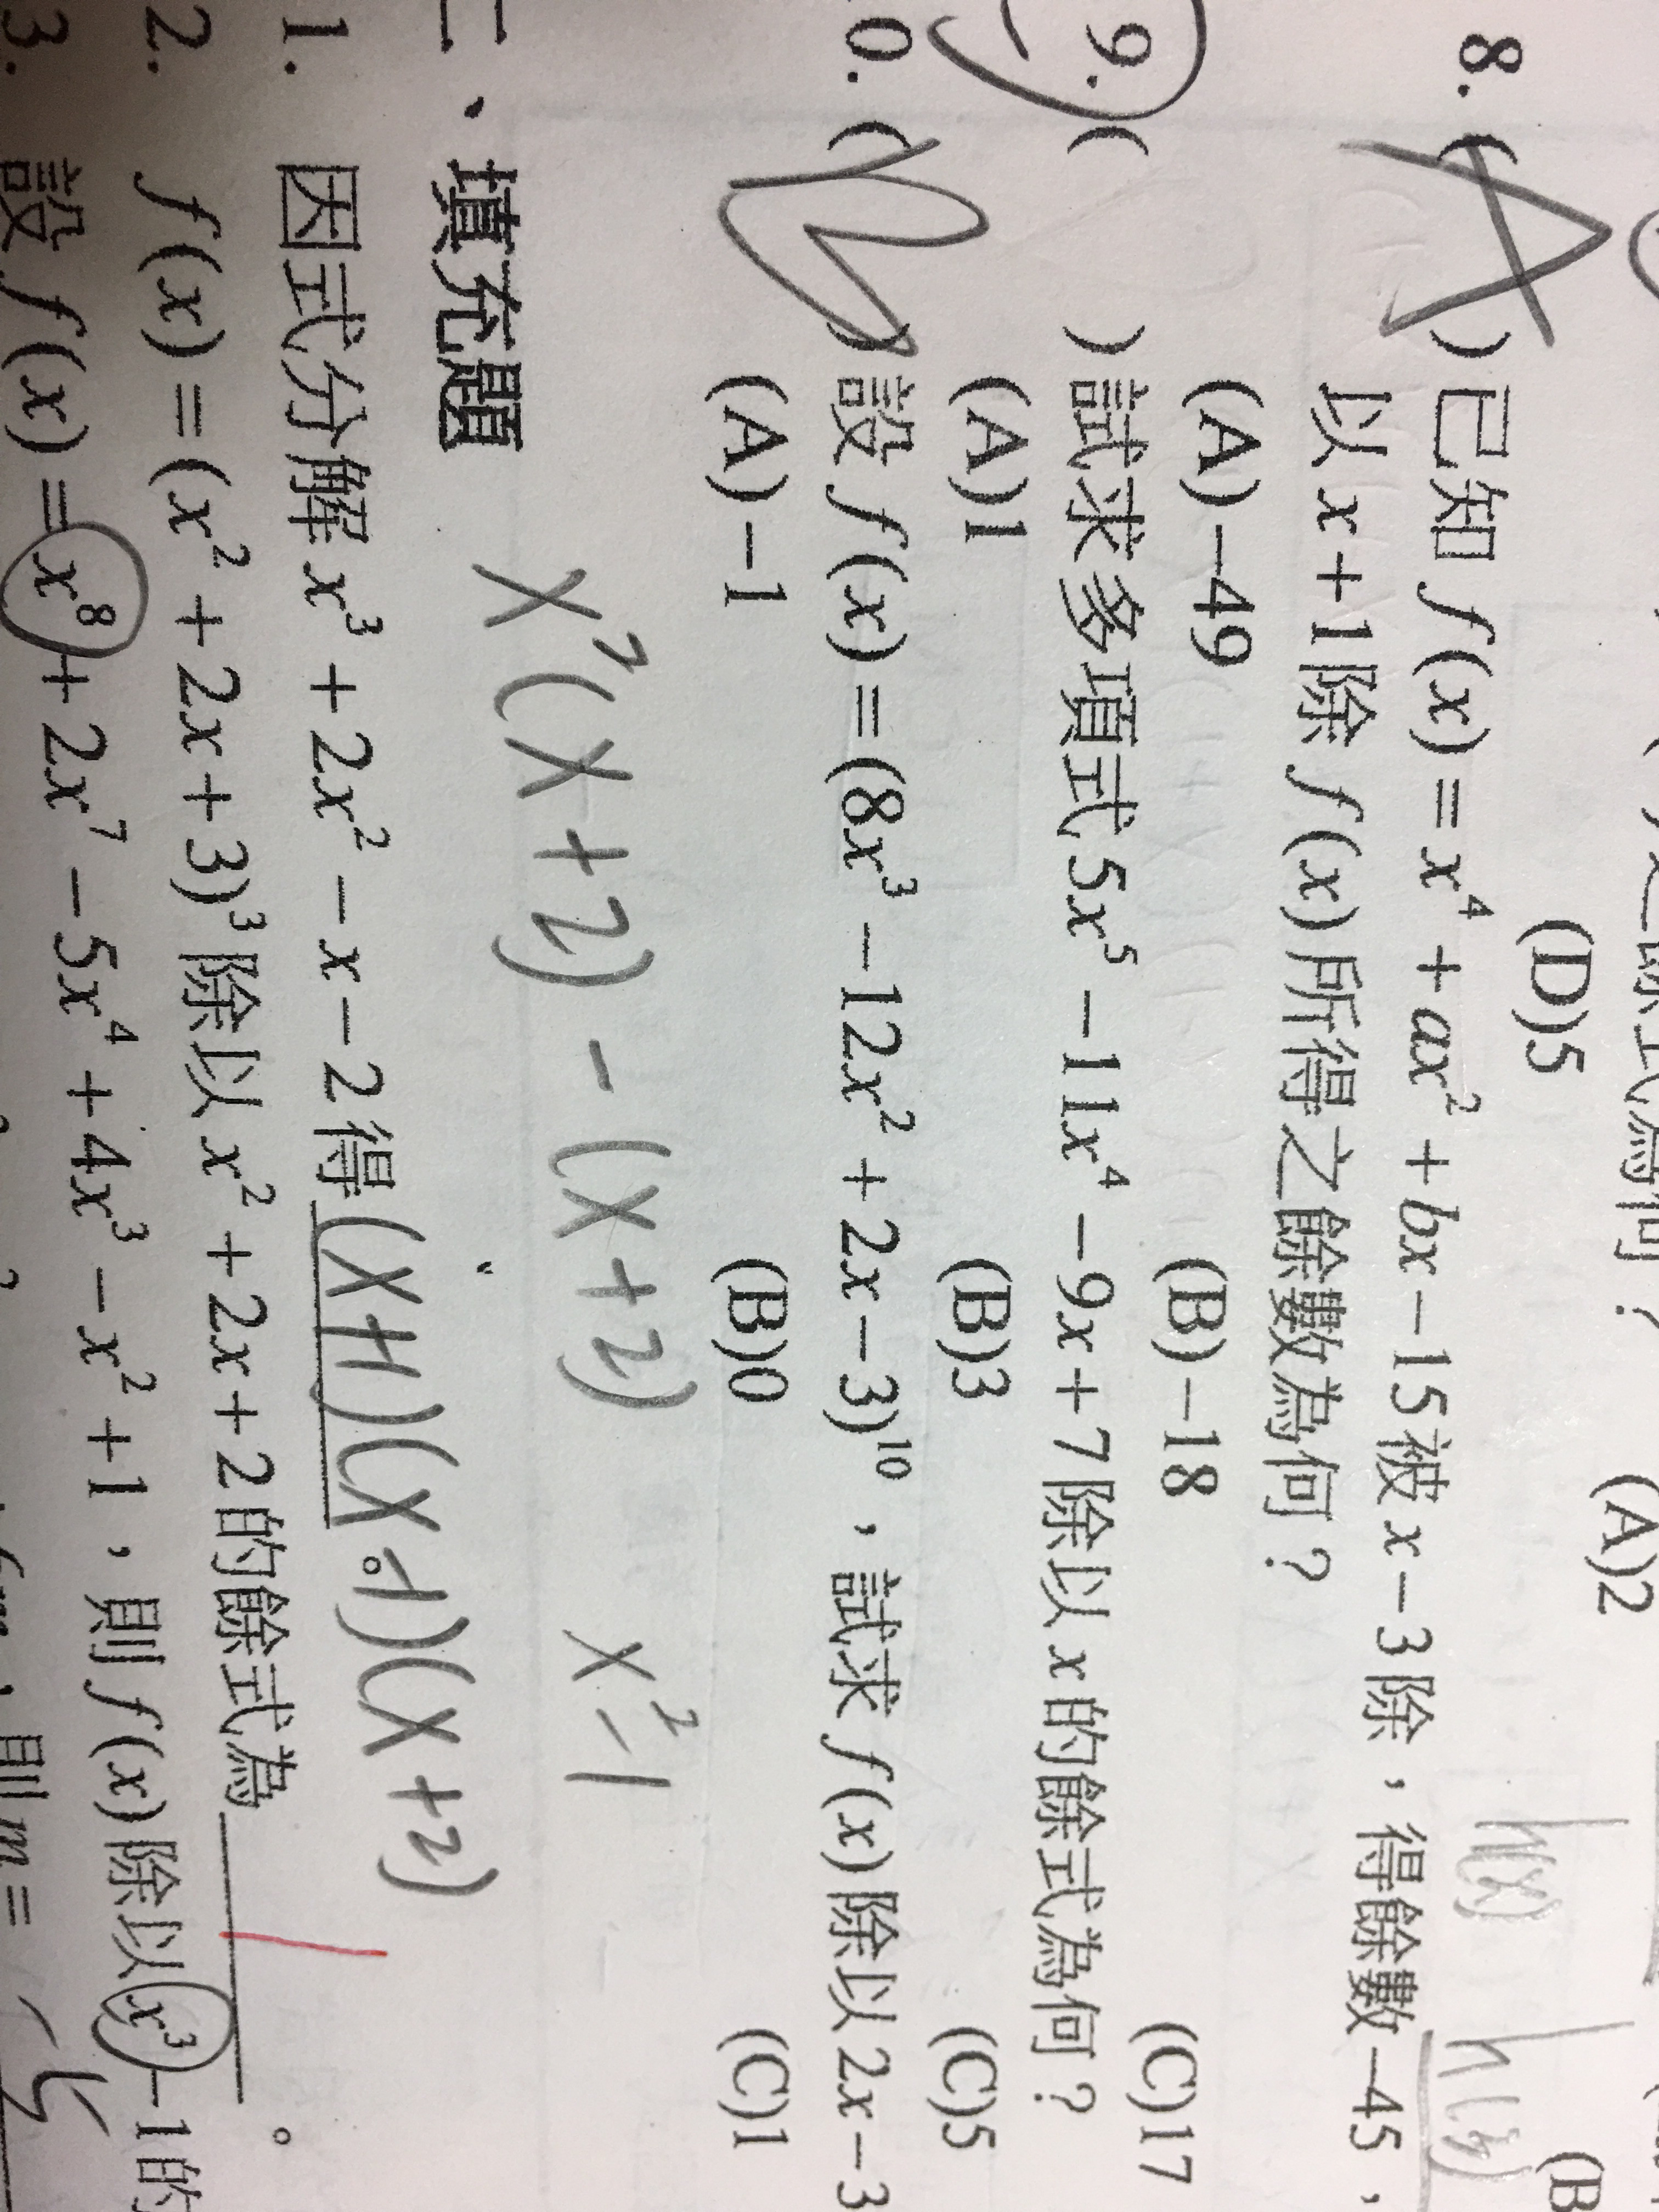 (A)2
(B
(D)5
h(x)
8. (A)已知 f(x)=x⁴+ax²+bx−15被 x−3除，得餘數−45，
以 x+1除 f(x)所得之餘數為何？
(A)−49 (B)−18 (C)17
9. ( )試求多項式5x⁵−11x⁴−9x+7除以 x的餘式為何？
(A)1 (B)3 (C)5
0. (B)設 f(x)=(8x³−12x²+2x−3)¹⁰，試求 f(x)除以2x−3
(A)−1 (B)0 (C)1
x²(x+2) − (x+2) x²−1
二、填充題
1. 因式分解 x³+2x²−x−2得(x+1)(x-1)(x+2)。
2. f(x)=(x²+2x+3)³除以 x²+2x+2的餘式為 1 。
3. 設 f(x)=x⁸+2x⁷−5x⁴+4x³−x²+1，則 f(x)除以 x³−1的
則 m=